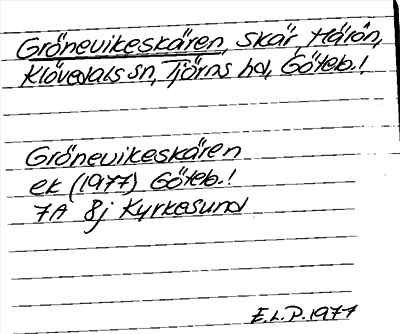 Grönevikeskären, skär, Härön,
Klövedals sn, Tjörns hd, Göteb.!
Grönevikeskären
ek (1977) Göteb.!
7A 8j Kyrkesund
E.L.P. 1977